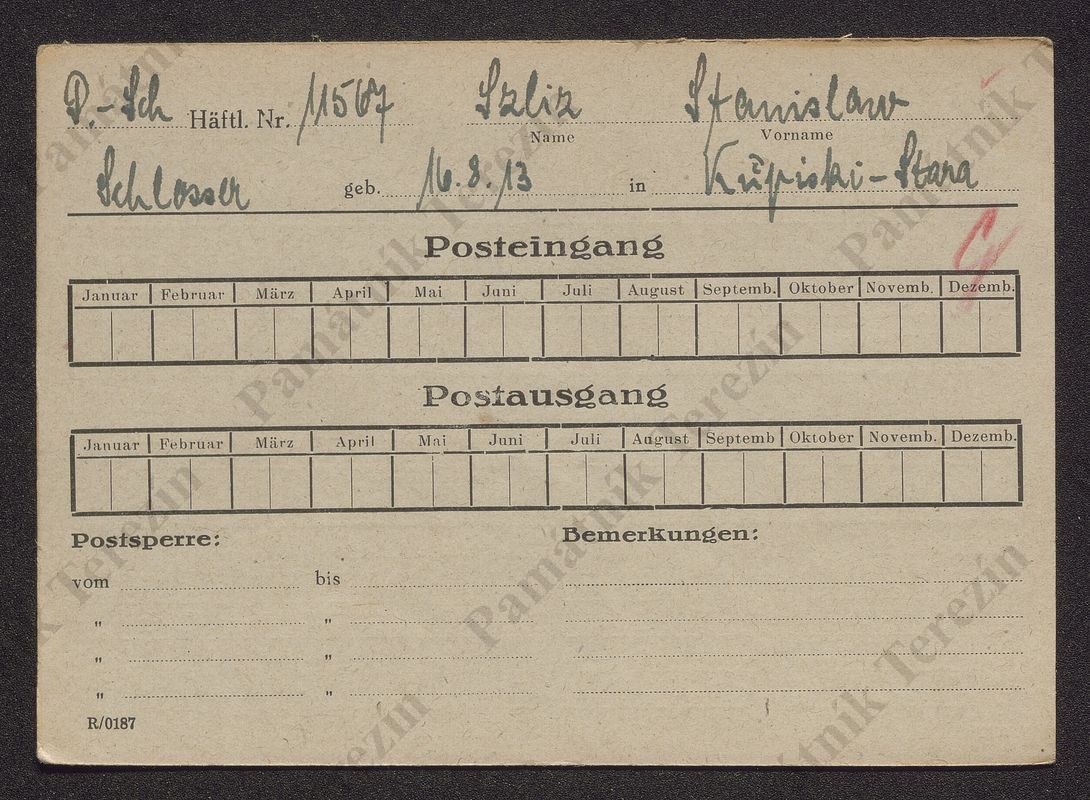 P.-Sch Häftl. Nr. 11567 Szliz Stanislaw
Name Vorname
Schlosser geb. 16.8.13 in Kupiski-Stara
Posteingang
Januar Februar März April Mai Juni Juli August Septemb. Oktober Novemb. Dezemb.
Postausgang
Januar Februar März April Mai Juni Juli August Septemb Oktober Novemb. Dezemb.
Postsperre: Bemerkungen:
vom bis
" "
" "
" "
R/0187
Památník Terezín